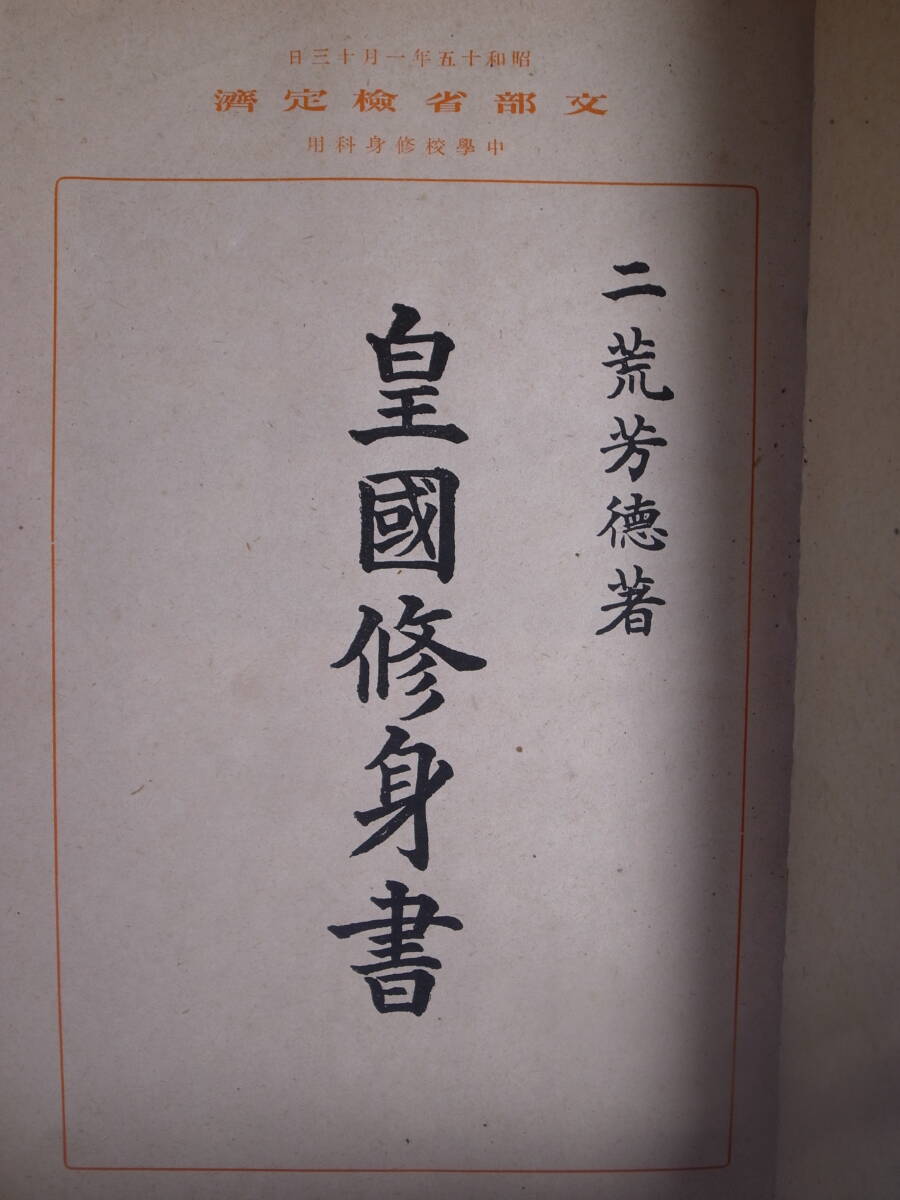 昭和十五年一月十三日
文部省檢定濟
中學校修身科用
二荒芳德著
皇國修身書